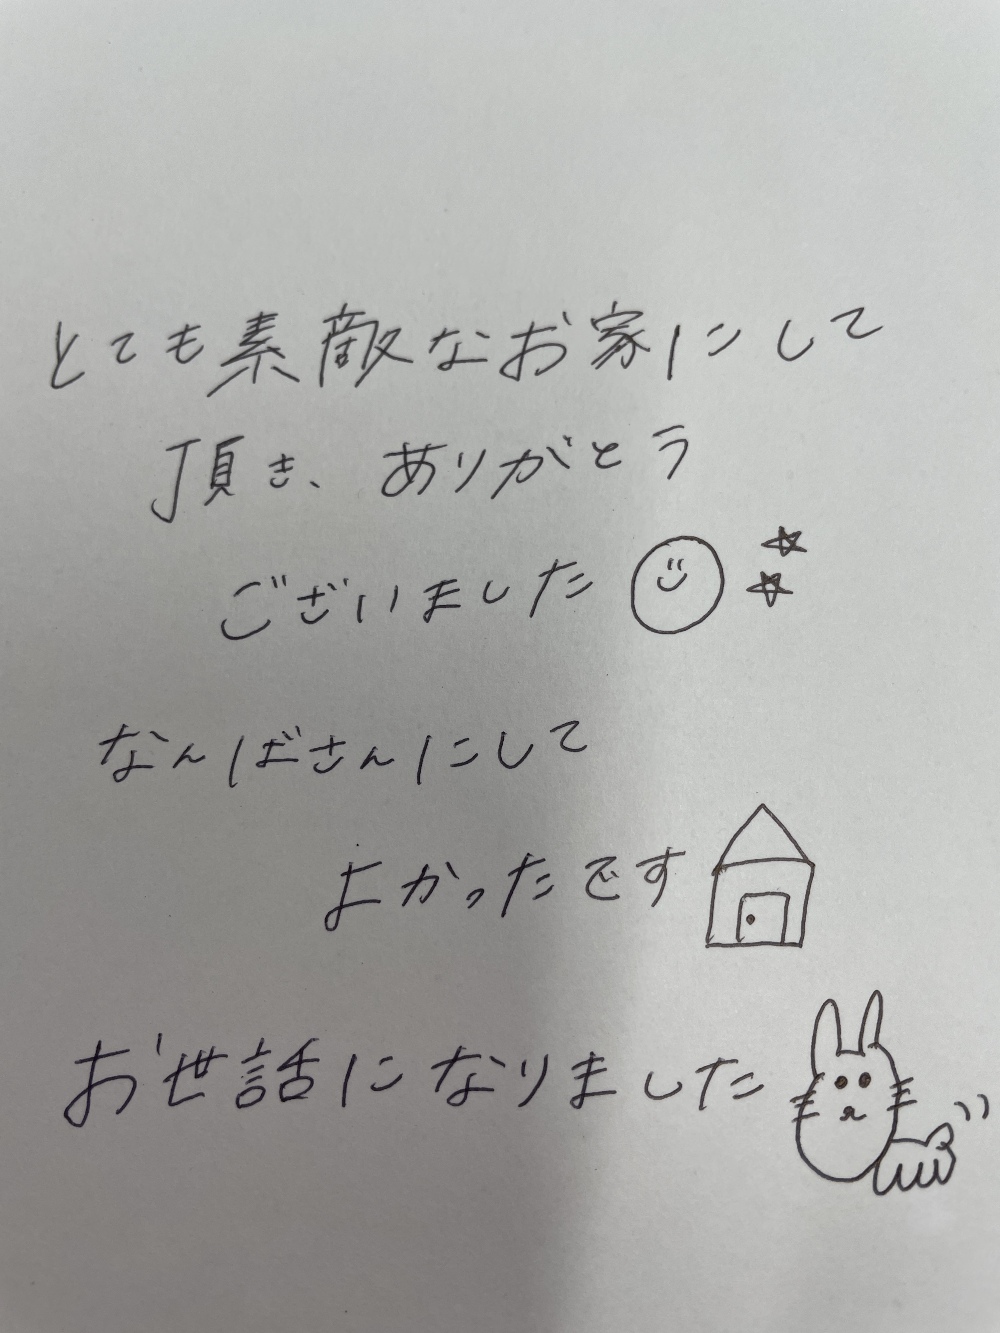 とても素敵なお家にして
頂き、ありがとう
ございました
なんばさんにして
よかったです
お世話になりました